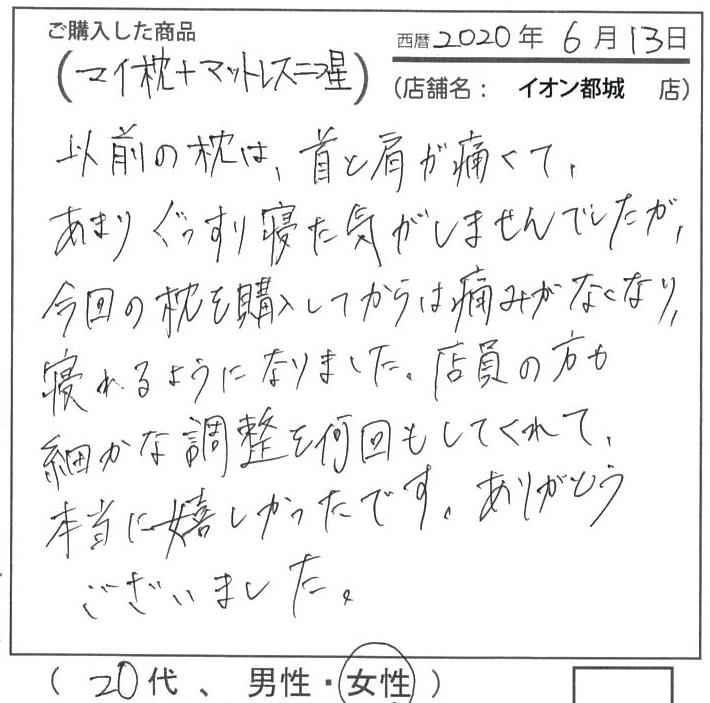 ご購入した商品
西暦2020年 6月13日
(マイ枕+マットレス二つ星)
(店舗名: イオン都城 店)
以前の枕は、首と肩が痛くて、
あまりぐっすり寝た気がしませんでしたが、
今回の枕を購入してからは痛みがなくなり、
寝れるようになりました。店員の方も
細かな調整を何回もしてくれて、
本当に嬉しかったです。ありがとう
ございました。
(20代、男性・女性)